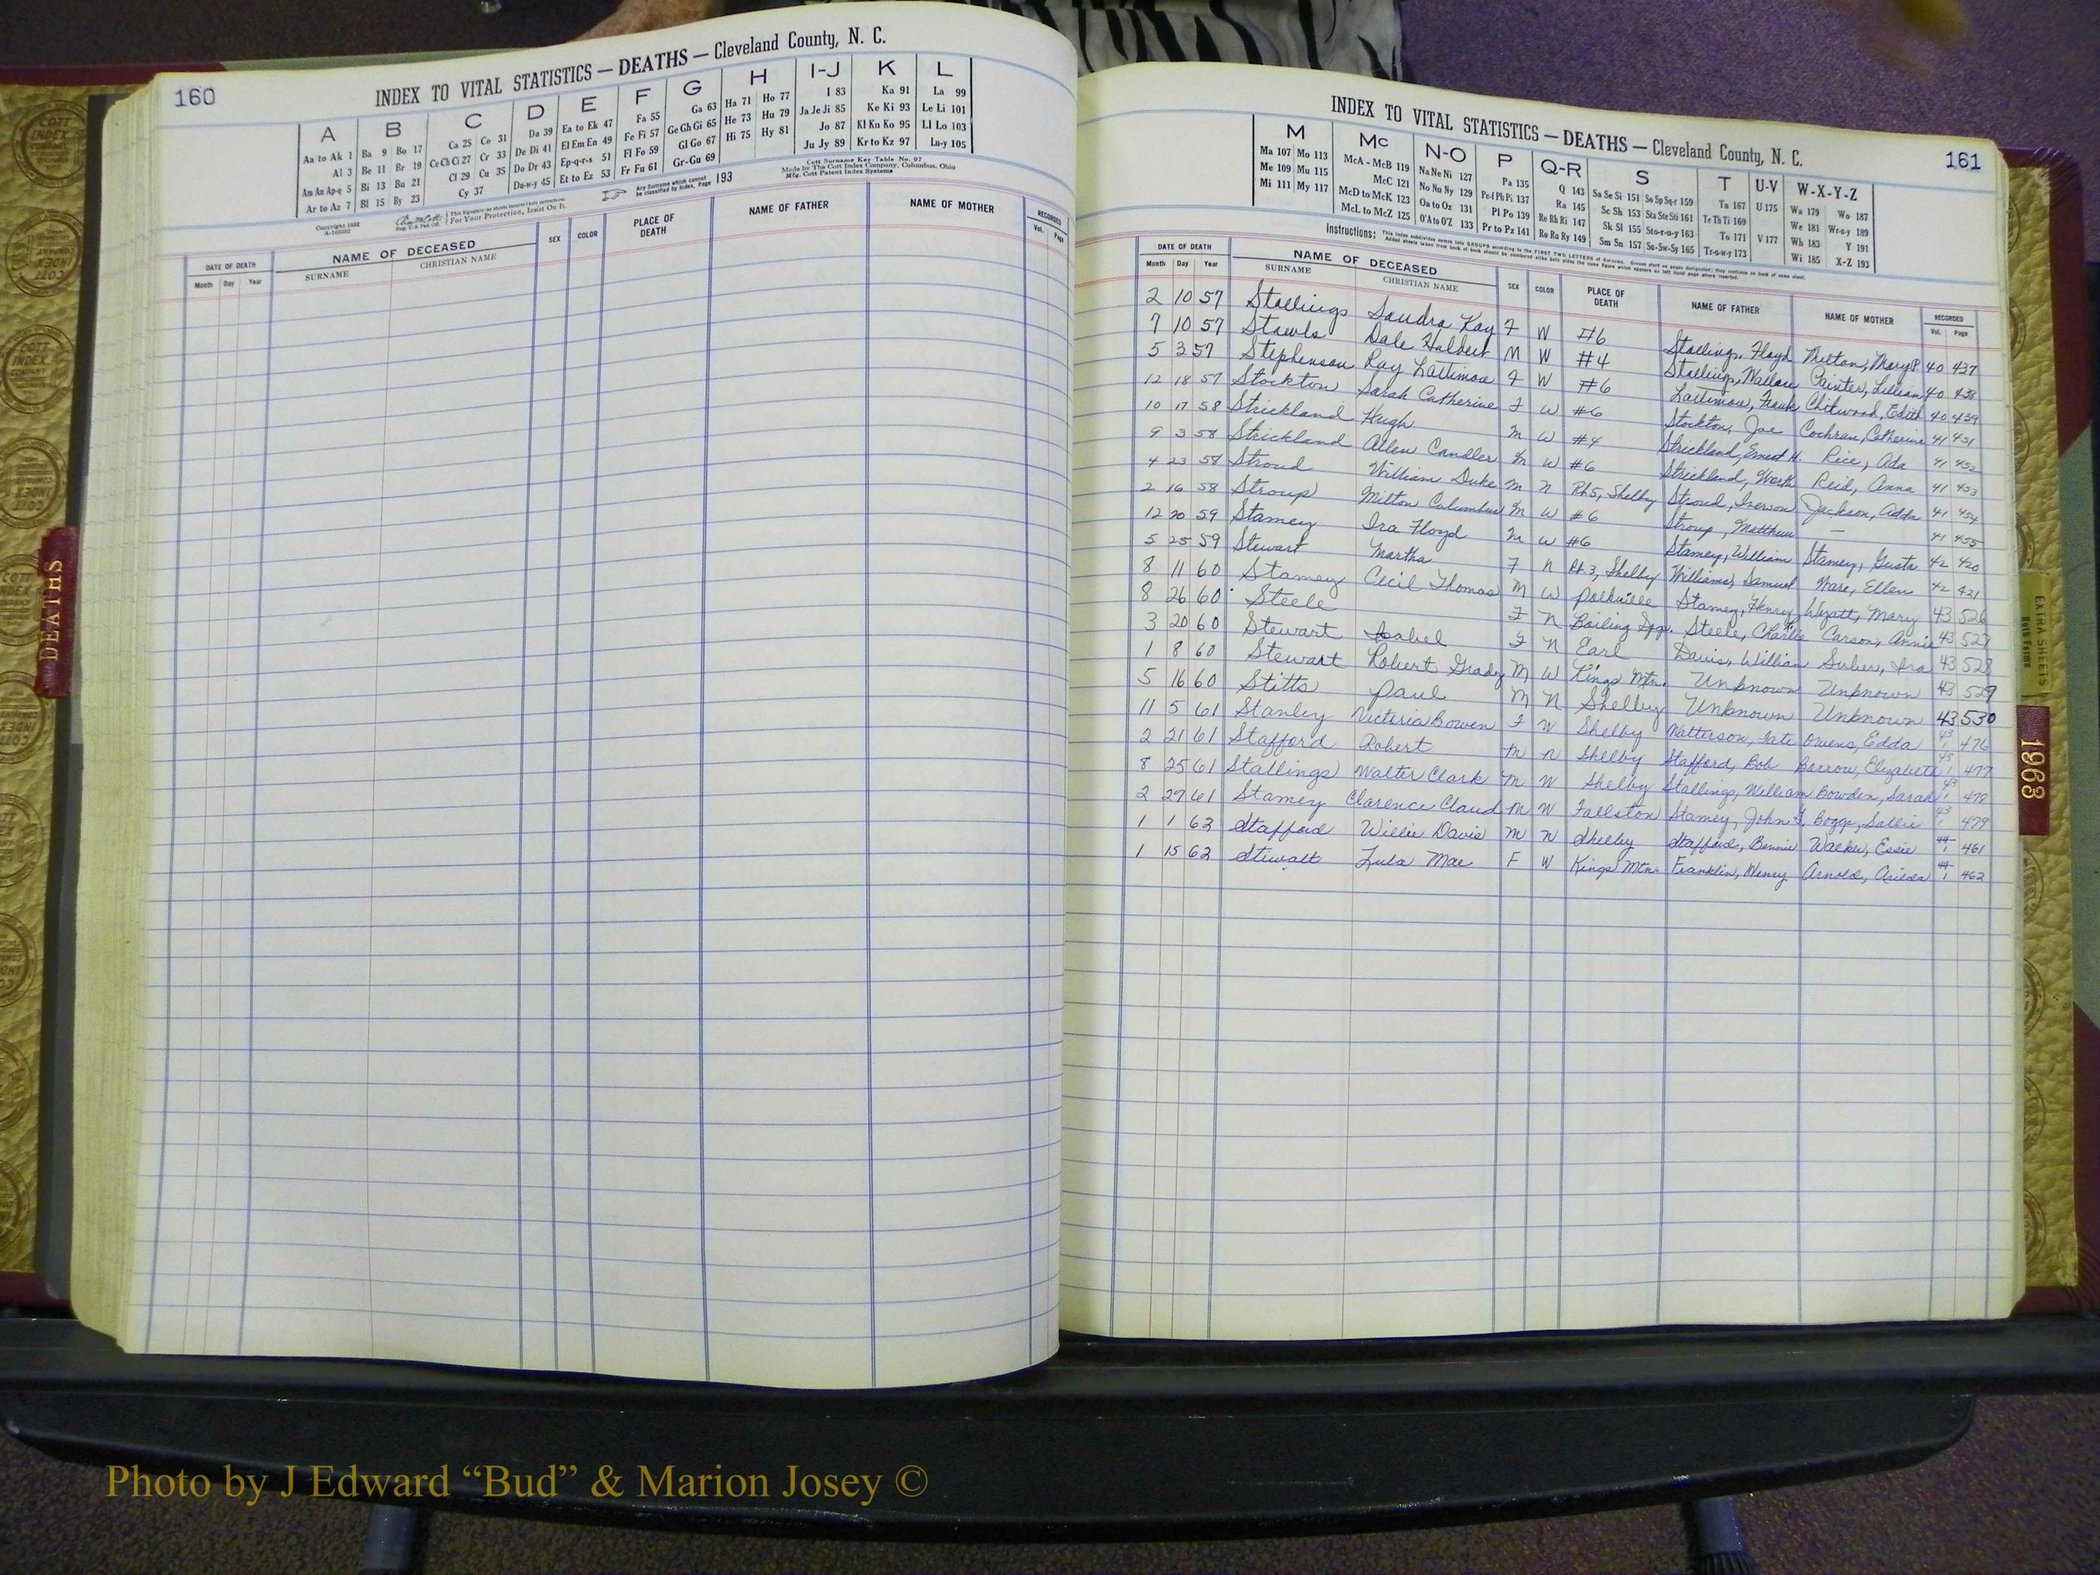 160
INDEX TO VITAL STATISTICS — DEATHS — Cleveland County, N. C.
A B C D E F G H I-J K L
Aa to Ak 1 Ba 9 Bo 17 Ca 25 Co 31 Da 39 Ea to Ek 47 Fa 55 Ga 63 Ha 71 Ho 77 I 83 Ka 91 La 99
Al 3 Be 11 Br 19 Ce Ch Ci 27 Cr 33 De Di 41 El Em En 49 Fe Fi 57 Ge Gh Gi 65 He 73 Hu 79 Ja Je Ji 85 Ke Ki 93 Le Li 101
Am An Ap-q 5 Bi 13 Bu 21 Cl 29 Cu 35 Do Dr 43 Ep-q-r-s 51 Fl Fo 59 Gl Go 67 Hi 75 Hy 81 Jo 87 Kl Kn Ko 95 Ll Lo 103
Ar to Az 7 Bl 15 By 23 Cy 37 Du-w-y 45 Et to Ez 53 Fr Fu 61 Gr-Gu 69 Ju Jy 89 Kr to Kz 97 Lu-y 105
Any Surname which cannot be classified by Index, Page 193
Cott Surname Key Table No. 97
Made by The Cott Index Company, Columbus, Ohio
Mfg. Cott Patent Index Systems
For Your Protection, Insist On It.
DATE OF DEATH NAME OF DECEASED SEX COLOR PLACE OF DEATH NAME OF FATHER NAME OF MOTHER RECORDED
Month Day Year SURNAME CHRISTIAN NAME Vol. Page
INDEX TO VITAL STATISTICS — DEATHS — Cleveland County, N. C.
161
M Mc N-O P Q-R S T U-V W-X-Y-Z
Ma 107 Mo 113 McA - McB 119 Na Ne Ni 127 Pa 135 Q 143 Sa Se Si 151 So Sp Sq-r 159 Ta 167 U 175 Wa 179 Wo 187
Me 109 Mu 115 McC 121 No Nu Ny 129 Pe-f Ph Pi 137 Ra 145 Sc Sh 153 Sta Ste Sti 161 Te Th Ti 169 We 181 Wr-u-y 189
Mi 111 My 117 McD to McK 123 Oa to Oz 131 Pl Po 139 Re Rh Ri 147 Sk Sl 155 Sto-r-u-y 163 To 171 V 177 Wh 183 Y 191
McL to McZ 125 O'A to O'Z 133 Pr to Pz 141 Ro Ru Ry 149 Sm Sn 157 Su-Sw-Sy 165 Tr-u-w-y 173 Wi 185 X-Z 193
Instructions:
DATE OF DEATH NAME OF DECEASED SEX COLOR PLACE OF DEATH NAME OF FATHER NAME OF MOTHER RECORDED
Month Day Year SURNAME CHRISTIAN NAME Vol. Page
2 10 57 Stallings Sandra Kay F W #6 Stallings, Floyd Melton, Mary P. 40 437
7 10 57 Dale Halbert M W #4 Stallings, Wallace Painter, Lillian 40 438
5 3 57 Stephenson Ray Lattimore F W #6 Lattimore, Frank Chitwood, Edith 40 439
12 18 57 Stockton Sarah Catherine F W #6 Stockton, Joe Cochran, Catherine 41 431
10 17 58 Strickland Hugh M W #4 Strickland, Ernest H. Rice, Ada 41 452
9 3 58 Strickland Allen Candler M W #6 Strickland, Worth Reid, Anna 41 453
4 23 58 Stroud William Duke M N Rt. 5, Shelby Stroud, Iverson Jackson, Adda 41 454
2 16 58 Stroup Milton Columbus M W #6 Stroup, Matthew — 41 455
12 20 59 Stamey Ira Floyd M W #6 Stamey, William Stamey, Gusta 42 420
5 25 59 Stewart Martha F N Rt. 3, Shelby Williams, Samuel Ware, Ellen 42 421
8 11 60 Stamey Cecil Thomas M W Polkville Stamey, Henry Wyatt, Mary 43 526
8 26 60 Steele F N Boiling Spgs. Steele, Charlie Carson, Annie 43 527
3 20 60 Stewart Isabel F N Earl Davis, William Suber, Ira 43 528
1 8 60 Stewart Robert Grady M W Kings Mtn. Unknown Unknown 43 529
5 16 60 Stitts Paul M N Shelby Unknown Unknown 43 530
11 5 61 Stanley Victoria Bowen F W Shelby Watterson, Tate Owens, Edda 43/1 476
2 21 61 Stafford Robert M N Shelby Stafford, Bob Barrow, Elizabeth 43/1 477
8 25 61 Stallings Walter Clark M W Shelby Stallings, William Bowden, Sarah 43/1 478
2 27 61 Stamey Clarence Claud M W Fallston Stamey, John T. Boggs, Sallie 43/1 479
1 1 62 Stafford Willie Davis M N Shelby Stafford, Bennie Walker, Essie 44/1 461
1 15 62 Stewalt Lula Mae F W Kings Mtn. Franklin, Henry Arnold, 44/1 462
DEATHS
1963
EXTRA SHEETS
Photo by J Edward “Bud” & Marion Josey ©